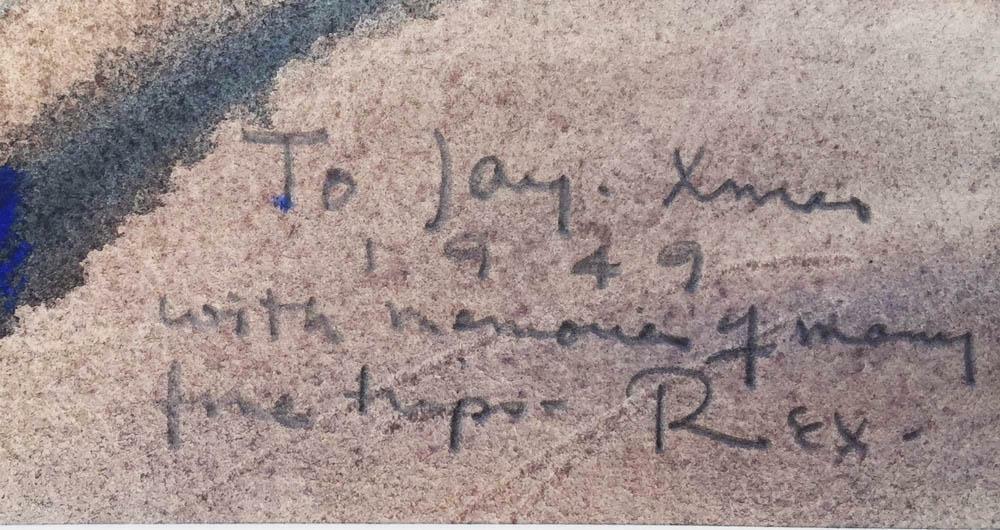 To Jay. Xmas
1949
with memories of many
fine trips- Rex.